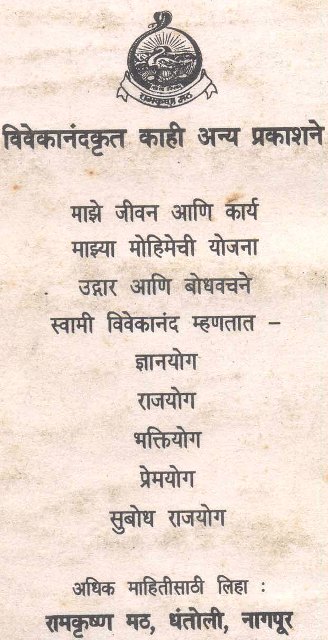 रामकृष्ण मठ
विवेकानंदकृत काही अन्य प्रकाशने
माझे जीवन आणि कार्य
माझ्या मोहिमेची योजना
उद्गार आणि बोधवचने
स्वामी विवेकानंद म्हणतात –
ज्ञानयोग
राजयोग
भक्तियोग
प्रेमयोग
सुबोध राजयोग
अधिक माहितीसाठी लिहा :
रामकृष्ण मठ, धंतोली, नागपूर